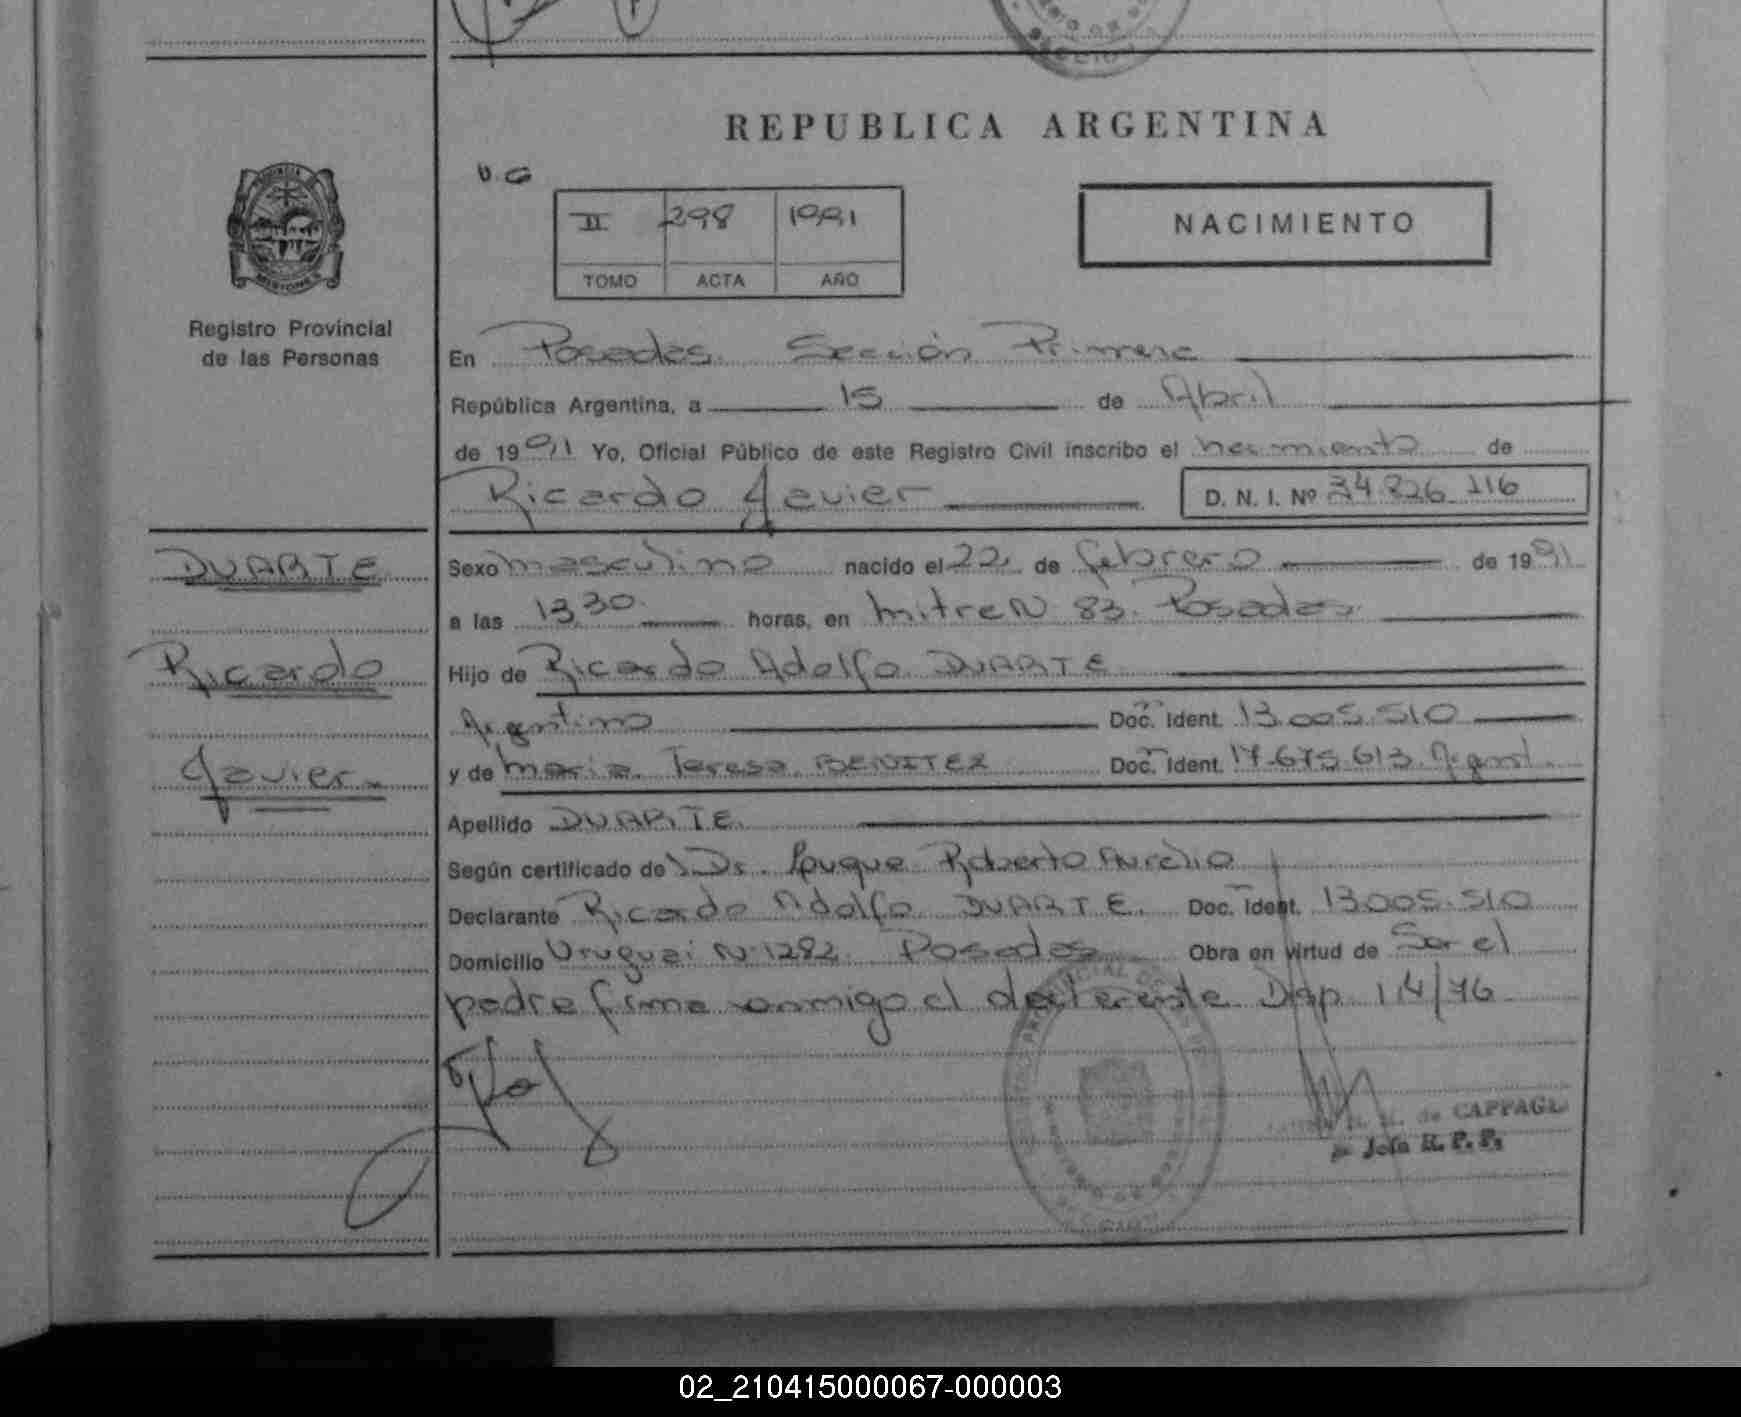 REPUBLICA ARGENTINA
II 298 1991
TOMO ACTA AÑO
NACIMIENTO
Registro Provincial
de las Personas
En Posadas Sección Primera
República Argentina, a 15 de Abril
de 1991 Yo, Oficial Público de este Registro Civil inscribo el nacimiento de
Ricardo Javier D. N. I. Nº 34.826.116
DUARTE
Ricardo
Javier
Sexo masculino nacido el 22 de febrero de 1991
a las 13,30 horas, en Mitre N 83 Posadas
Hijo de Ricardo Adolfo DUARTE
Argentino Doc. Ident. 13.005.510
y de Maria Teresa BENITEZ Doc. Ident. 17.675.613 Argent.
Apellido DUARTE
Según certificado de Dr. Luque Roberto Aurelio
Declarante Ricardo Adolfo DUARTE Doc. Ident. 13.005.510
Domicilio Uruguai N 1282 Posadas Obra en virtud de Ser el
padre firma conmigo el declarante Disp 14/76
de CAPPAGL
Jefa R. P. P.
02_210415000067-000003